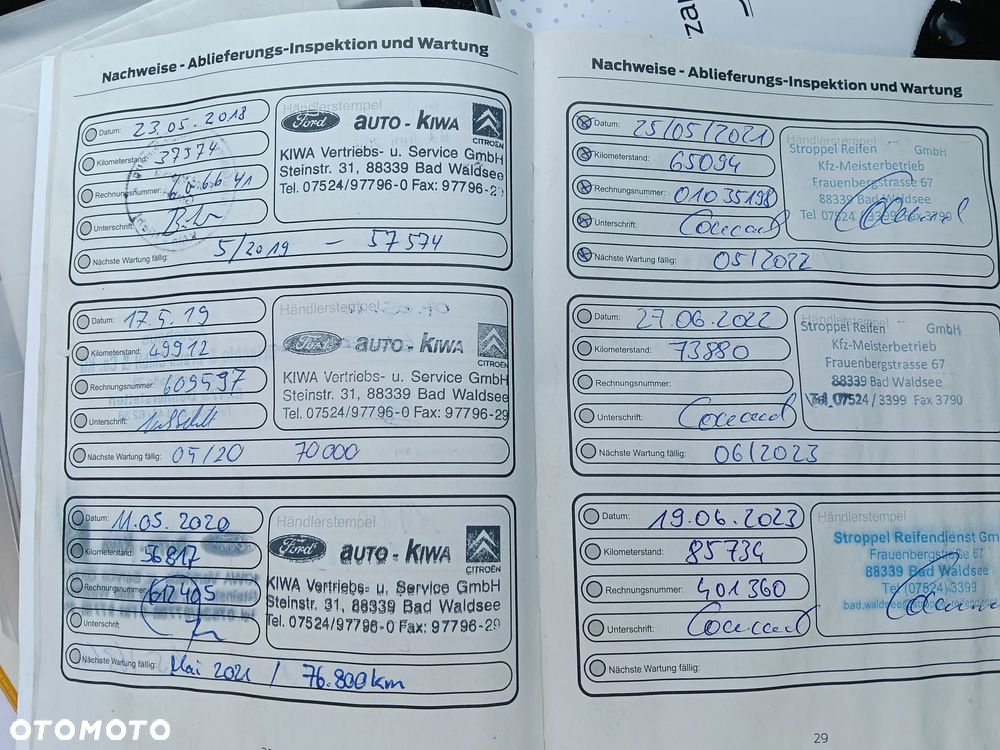 Nachweise - Ablieferungs-Inspektion und Wartung
Datum: 23.05.2018
Kilometerstand: 37574
Rechnungsnummer:
Unterschrift:
Nächste Wartung fällig: 5/2019 - 57574
Händlerstempel
Ford AUTO-KIWA CITROËN
KIWA Vertriebs- u. Service GmbH
Steinstr. 31, 88339 Bad Waldsee
Tel. 07524/97796-0 Fax: 97796-29
Datum: 17.5.19
Kilometerstand: 49912
Rechnungsnummer: 609597
Unterschrift:
Nächste Wartung fällig: 05/20 70000
Händlerstempel
Ford AUTO-KIWA CITROËN
KIWA Vertriebs- u. Service GmbH
Steinstr. 31, 88339 Bad Waldsee
Tel. 07524/97796-0 Fax: 97796-29
Datum: 11.05.2020
Kilometerstand: 56817
Rechnungsnummer: 612405
Unterschrift:
Nächste Wartung fällig: Mai 2021 / 76.800km
Händlerstempel
Ford AUTO-KIWA CITROËN
KIWA Vertriebs- u. Service GmbH
Steinstr. 31, 88339 Bad Waldsee
Tel. 07524/97796-0 Fax: 97796-29
Nachweise - Ablieferungs-Inspektion und Wartung
Datum: 25/05/2021
Kilometerstand: 65094
Rechnungsnummer: 01035198
Unterschrift:
Nächste Wartung fällig: 05/2022
Händlerstempel
Stroppel Reifen GmbH
Kfz-Meisterbetrieb
Frauenbergstrasse 67
88339 Bad Waldsee
Tel 07524 / 3399 Fax 3790
Datum: 27.06.2022
Kilometerstand: 73880
Rechnungsnummer:
Unterschrift:
Nächste Wartung fällig: 06/2023
Händlerstempel
Stroppel Reifen GmbH
Kfz-Meisterbetrieb
Frauenbergstrasse 67
88339 Bad Waldsee
Tel 07524 / 3399 Fax 3790
Datum: 19.06.2023
Kilometerstand: 85734
Rechnungsnummer: 401360
Unterschrift:
Nächste Wartung fällig:
Händlerstempel
Stroppel Reifendienst Gm
Frauenbergstraße 67
88339 Bad Waldsee
Tel (07524) 3399
29
OTOMOTO